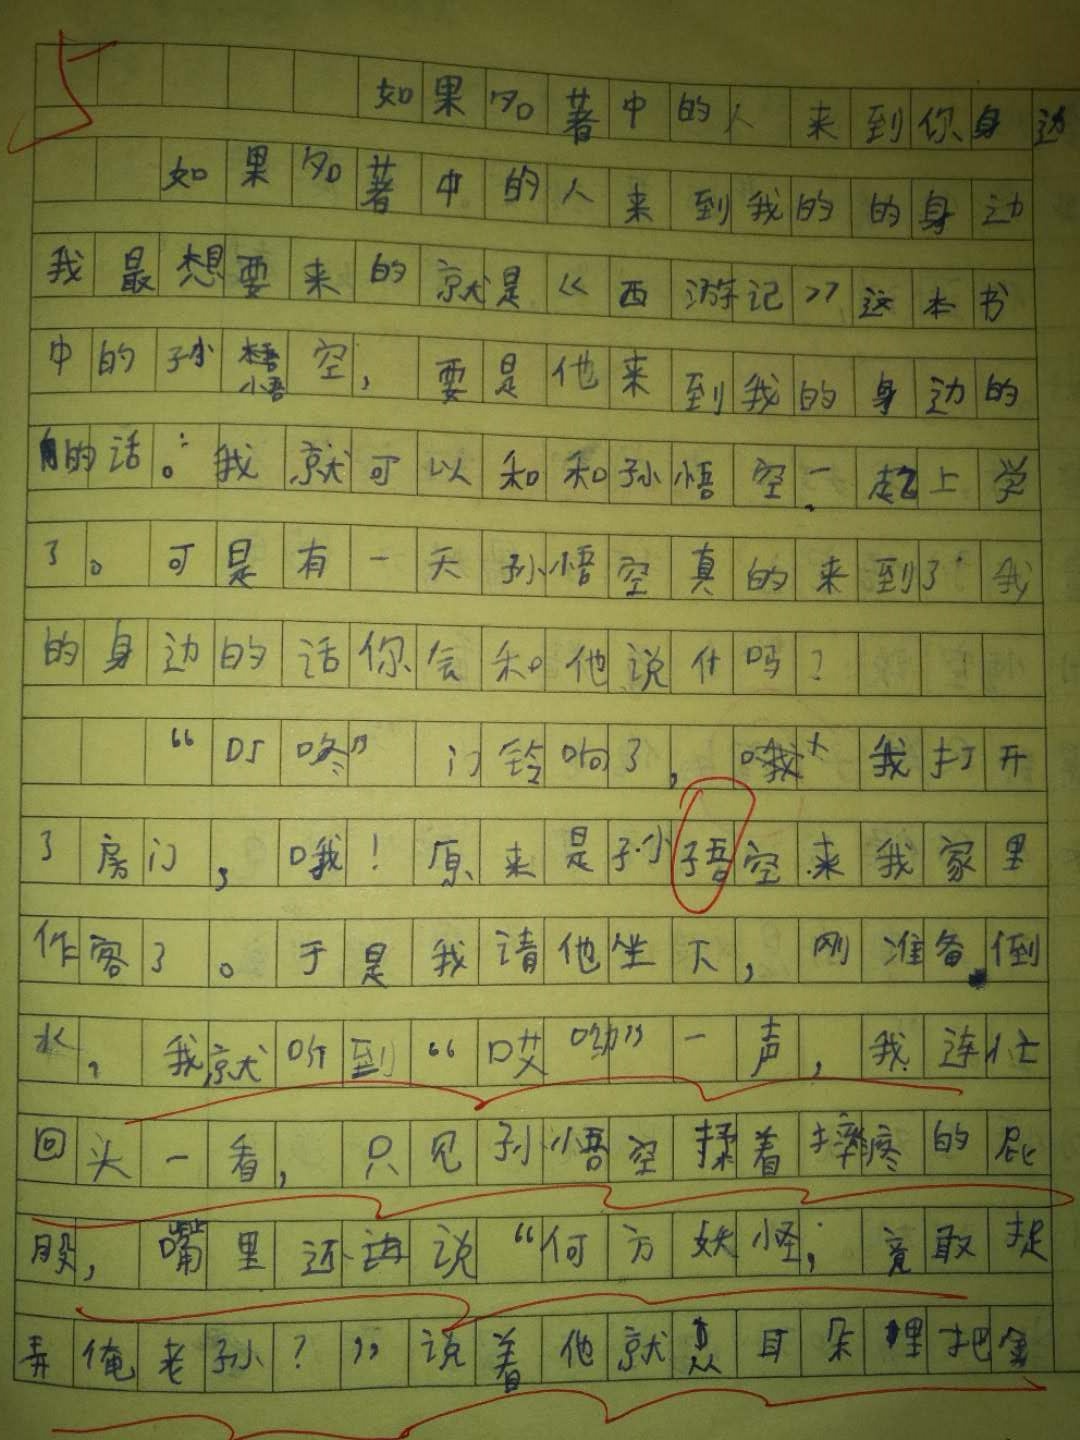 如果名著中的人来到你身边
如果名著中的人来到我的的身边
我最想要来的就是《西游记》这本书
中的孙悟空，要是他来到我的身边的
的话。我就可以和和孙悟空一起上学
了。可是有一天孙悟空真的来到了我
的身边的话你会和他说什吗？
“叮咚”门铃响了，哦我打开
了房门，哦！原来是孙悟空来我家里
作客了。于是我请他坐下，刚准备倒
水，我就听到“哎呦”一声，我连忙
回头一看，只见孙悟空揉着摔疼的屁
股，嘴里还说“何方妖怪，竟敢捉
弄俺老孙？”说着他就从耳朵里把金